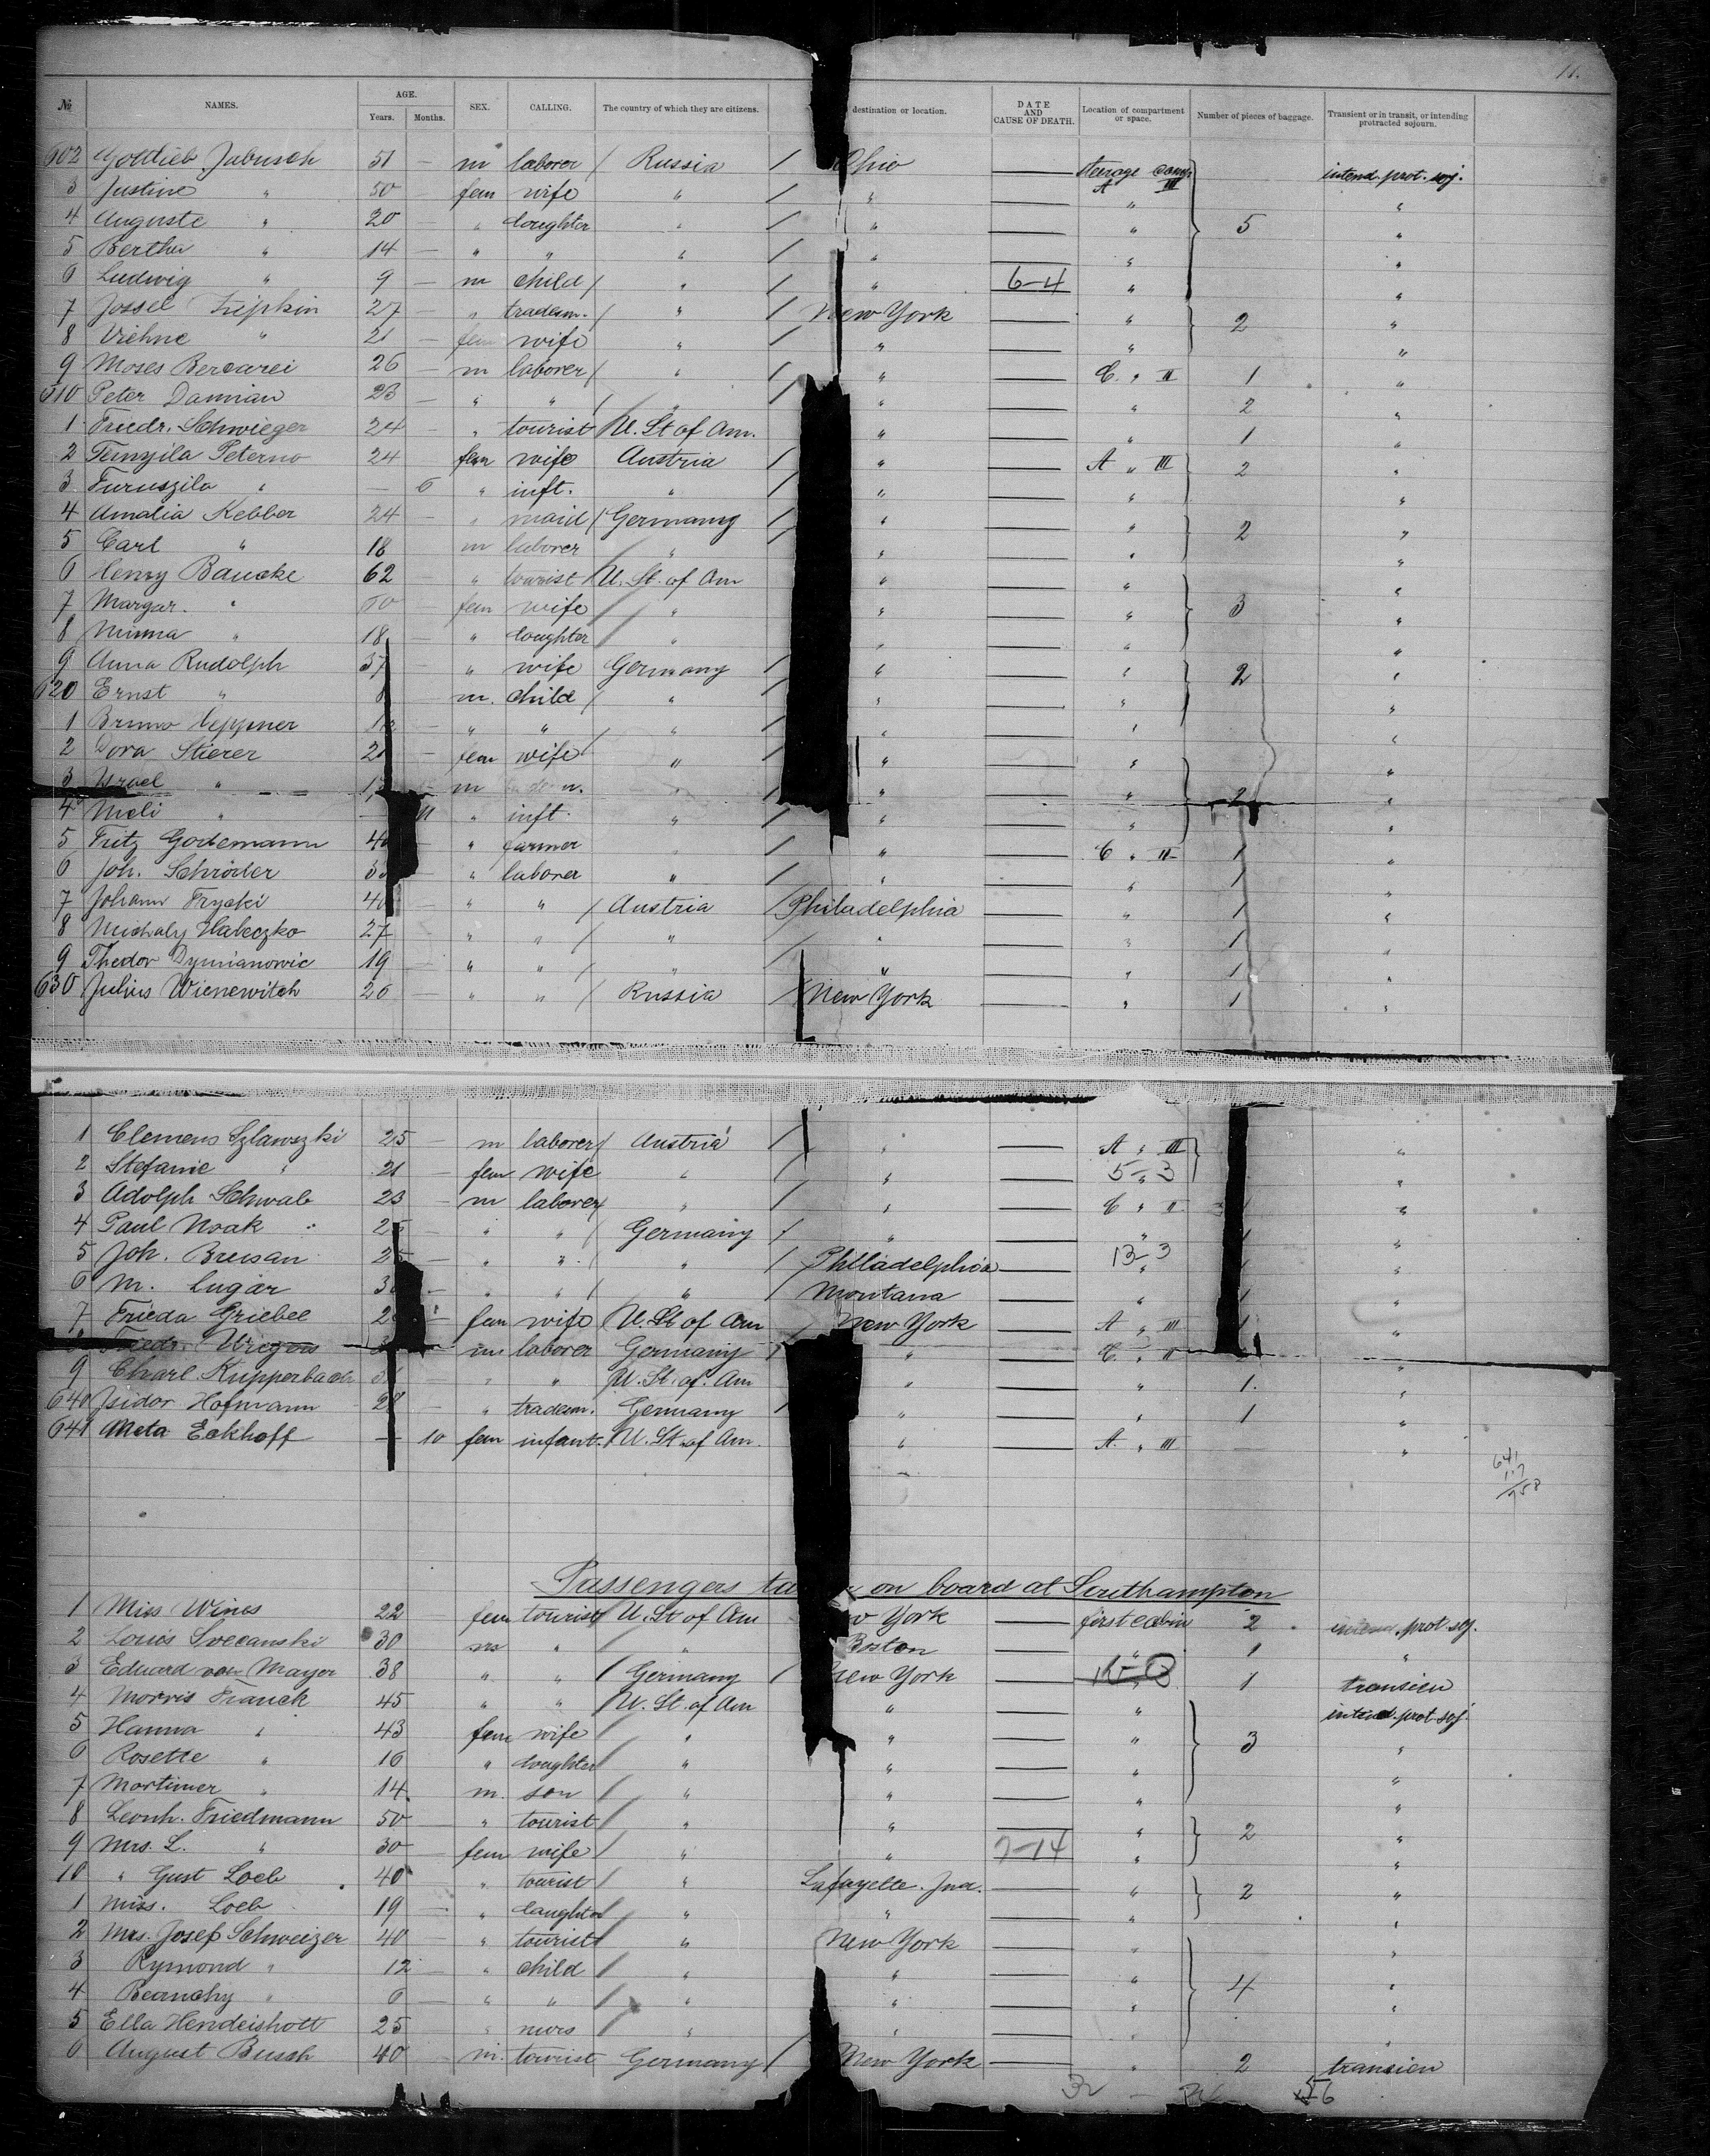 11.
№ NAMES. AGE. Years. Months. SEX. CALLING. The country of which they are citizens. destination or location. DATE AND CAUSE OF DEATH. Location of compartment or space. Number of pieces of baggage. Transient or in transit, or intending protracted sojourn.
602 Gottlieb Jabusch 51 — m laborer / Russia / Ohio — steerage comp. A III intend. prot. soj.
3 Justine " 50 — fem wife " / " — " "
4 Auguste " 20 " doughter " / " — " 5 "
5 Bertha " 14 — " " " / " — " "
6 Ludwig " 9 — m child / " / " 6-4 " "
7 Jossel 27 — " tradesm. / " / New York — " 2 "
8 Viehne " 21 — fem wife " / " — " "
9 Moses Bercarei 26 — m laborer / " / " — C. " II 1 "
610 Peter Damian 23 — " " / " / " — " 2 "
1 Friedr. Schwieger 24 — " tourist / U. St of Am. " — " 1 "
2 Peterno 24 — fem wife Austria / " — A " III 2 "
3 " — 6 " inft. " / " — " "
4 Amalia Kebber 24 — " maid / Germany / " — " 2 "
5 Carl " 18 m laborer / " / " — " "
6 Henry Baucke 62 " tourist / U. St. of Am " — " "
7 Margar. " 60 fem wife / " " — " 3 "
8 Minna " 18 — " doughter / " " — " "
9 Anna Rudolph 37 " wife Germany / " — " 2 "
620 Ernst " m. child / " / " — " "
1 Bruno Heppner — " " " / " — " "
2 Dora Stierer — fem wife / " " — " "
3 Israel " m " / " — " 2 "
4 Meli " — 11 " inft. " / " — " "
5 Fritz Godemann — " farmer " / " — C " II 1 "
6 Joh. Schröder — " laborer " / " — " 1 "
7 Johann Tryski — " " / Austria / Philadelphia — " 1 "
8 Michaly Habeczko 27 " " / " / " — " 1 "
9 Thedor Dymianowic 19 — " " / " / " — " 1 "
630 Julius Wienewitch 26 — " " / Russia / New York — " 1 "
1 Clemens Szlawszki 25 — m laborer / Austria / " — A " III "
2 Stefanie " 21 — fem wife " / " — 5-3 "
3 Adolph Schwab 23 — m laborer / " / " — C " II "
4 Paul Noak — " " / Germany / " — " "
5 Joh. Bresan 25 — " " / " / Philadelphia — 13-3 "
6 M. Lugar — " " / " / Montana — " 1 "
7 Frieda Griebel — fem wife / U. St of Am / New York — A " III 1 "
laborer Germany / " — C. " II
9 Charl Kupperbach — " " / U. St. of. Am " — " 1. "
640 Isidor Hofmann 28 — " tradesm. Germany / " — " 1 "
641 Meta Eckhoff — 10 fem infant. / U. St. of Am. " — A. " III "
641
117
758
Passengers on board at Southampton
1 Miss Wines 22 — fem tourist / U. St of Am York — first cabin 2 intend. prot. soj.
2 Louis 30 " / " Boston — " 1 "
3 Eduard von Mayer 38 " " / Germany / New York — 1 transien
4 Morris Franck 45 — " " / U. St. of Am " — " intend. prot. soj.
5 Hanna " 43 — fem wife / " " — " 3 "
6 Rosette " 16 " doughter / " " — " "
7 Mortimer " 14. m. son / " " — " "
8 Leonh. Friedmann 50 — " tourist / " " — " 2 "
9 Mrs. L. " 30 — fem wife / " " 7-14 " "
10 " Gust Loeb 40 " tourist / " Lafayette. Ind. — " 2 "
1 Miss. Loeb 19 — " daughter / " " — " "
2 Mrs. Josef Schweizer 40 — " tourist / " New York — " "
3 Rymond " 12 — " child / " " — " 4 "
4 " 6 — " " / " " — " "
5 Ella 25 " nurs / " " — " "
6 August Busch 40 — m. tourist Germany / New York — " 2 transien
32 — 56